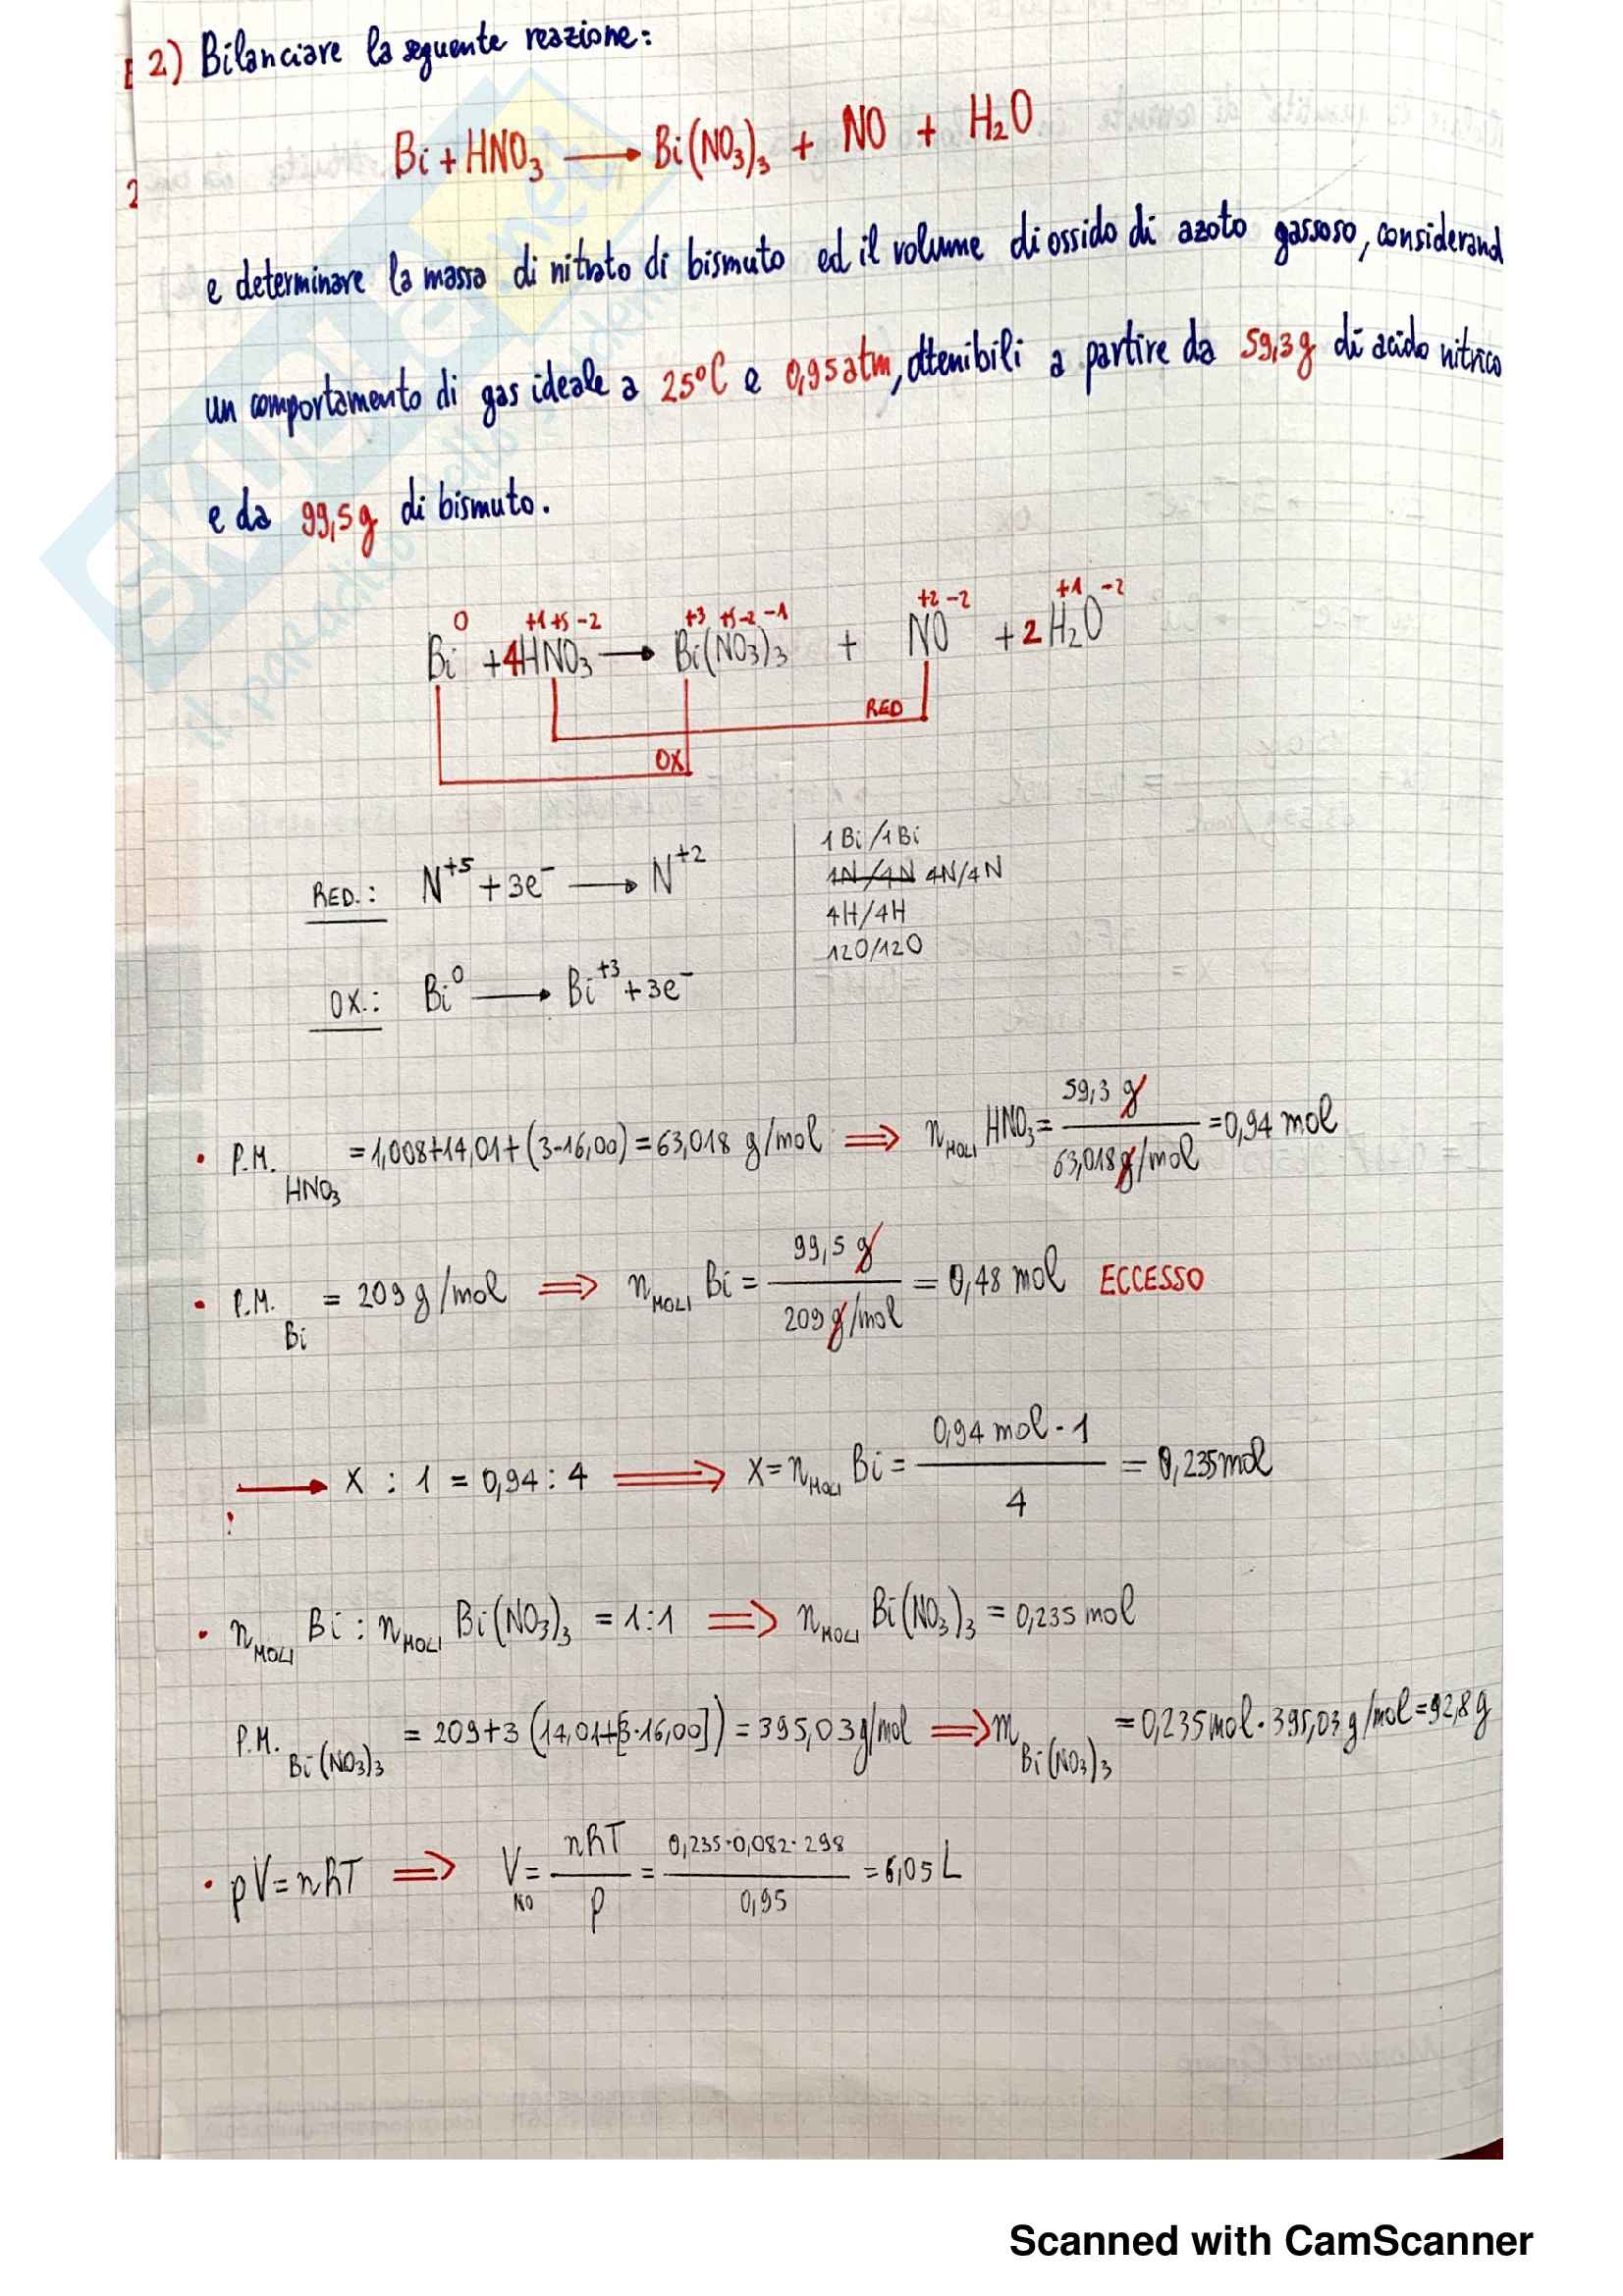 2) Bilanciare la seguente reazione:
Bi + HNO₃ ⟶ Bi(NO₃)₃ + NO + H₂O
e determinare la massa di nitrato di bismuto ed il volume di ossido di azoto gassoso, considerand
un comportamento di gas ideale a 25°C e 0,95 atm, ottenibili a partire da 59,3 g di acido nitrico
e da 99,5 g di bismuto.
0 +1 +5 -2 +3 +5 -2 -1 +2 -2 +1 -2
Bi + 4HNO₃ ⟶ Bi(NO₃)₃ + NO + 2H₂O
RED
OX
RED.: N⁺⁵ + 3e⁻ ⟶ N⁺²
OX.: Bi⁰ ⟶ Bi⁺³ + 3e⁻
1 Bi/1 Bi
1N/1N 4N/4N
4H/4H
12O/12O
• P.M. HNO₃ = 1,008+14,01+(3·16,00) = 63,018 g/mol ⟹ n MOLI HNO₃ = 59,3 g / 63,018 g/mol = 0,94 mol
• P.M. Bi = 209 g/mol ⟹ n MOLI Bi = 99,5 g / 209 g/mol = 0,48 mol ECCESSO
⟶ X : 1 = 0,94 : 4 ⟹ X = n MOLI Bi = 0,94 mol · 1 / 4 = 0,235 mol
• n MOLI Bi : n MOLI Bi(NO₃)₃ = 1:1 ⟹ n MOLI Bi(NO₃)₃ = 0,235 mol
P.M. Bi(NO₃)₃ = 209+3(14,01+[3·16,00]) = 395,03 g/mol ⟹ m Bi(NO₃)₃ = 0,235 mol · 395,03 g/mol = 92,8 g
• pV = nRT ⟹ V NO = nRT / p = 0,235·0,082·298 / 0,95 = 6,05 L
Scanned with CamScanner